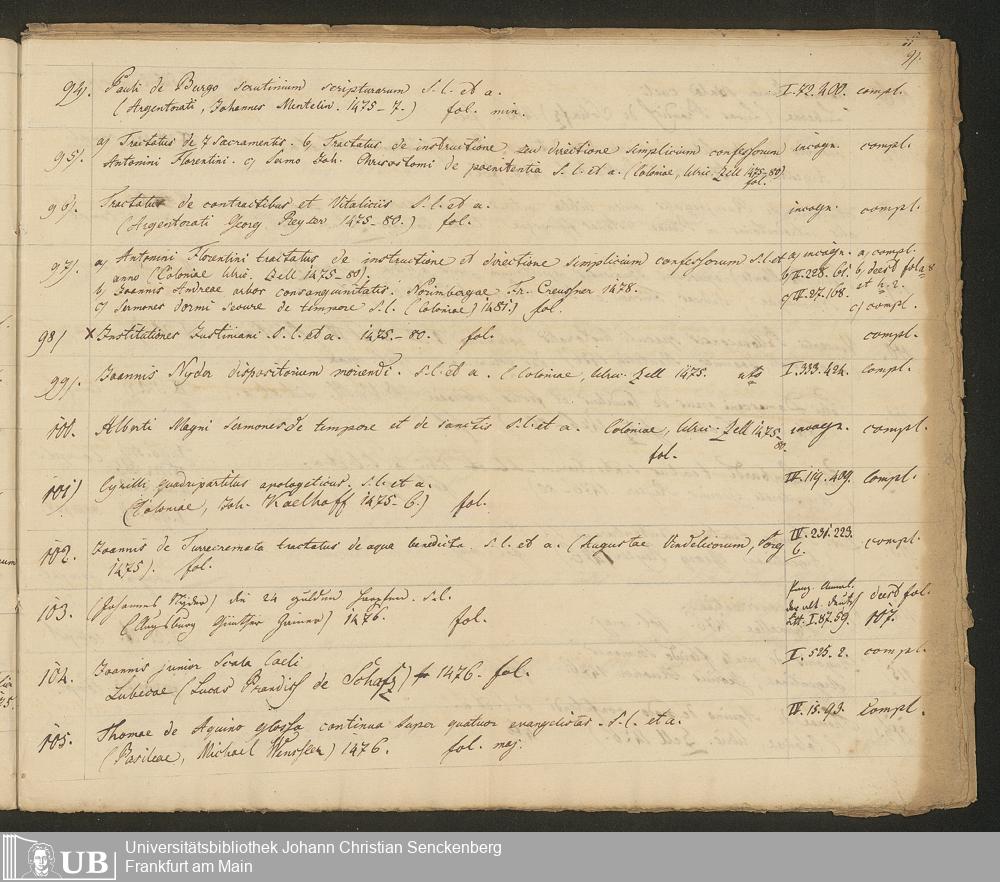 94). Pauli de Burgo scrutinium scripturarum S. l. et a. I. 72. 400. compl.
(Argentorati, Johannes Mentelin. 1475-7.) fol. min.
95). a) Tractatus de 7 Sacramentis. b) Tractatus de instructione seu directione simplicium confessorum incogn. compl.
Antonini Florentini. c) Sermo Joh. Chrisostomi de poenitentia S. l. et a. (Coloniae, Ulric. Zell 1475-80)
fol.
96). Tractatus de contractibus et Vitaliciis S. l. et a. incogn. compl.
(Argentorati Georg Reyser 1475-80.) fol.
97). a) Antonini Florentini tractatus de instructione et directione simplicium confessorum S. l. et a) incogn. a) compl.
anno (Coloniae Ulric. Zell 1475-80). b) II. 228. 61. b) deest fol.
b) Joannis Andreae arbor consanguinitatis. Norimbergae Fr. Creusner 1478. et
c) Sermones dormi secure de tempore S. l. (Coloniae) 1481.) fol. c) IV. 27. 168. c) compl.
98) x Institutiones Justiniani S. l. et a. 1475-80. fol. compl.
99). Joannis Nyder dispositorium moriendi. S. l. et a. (Coloniae, Ulric. Zell 1475. 4to I. 333. 424. compl.
100. Alberti Magni Sermones de tempore et de sanctis S. l. et a. Coloniae, Ulric. Zell 1475-80. incogn. compl.
fol.
101) Cyrilli quadripartitus apologeticus. S. l. et a. IV. 119. 409. compl.
(Coloniae, Joh. Koelhoff 1475-6.) fol.
102. Joannis de Turrecremata tractatus de aqua benedicta S. l. et a. (Augustae Vindelicorum, Sorg IV. 231. 223. compl.
1475). fol. 6.
103. (Johannes Nyder) die 24 gulden Harpfen. S. l. Panz. Annal. deest fol.
(Augsburg Günther Zainer) 1476. fol. der alt. deutsch Litt. I. 87. 59. 107.
104. Joannis junior Scala Caeli I. 525. 2. compl.
Lubecae (Lucas Brandiss de Schasz) 1476. fol.
105. Thomae de Aquino glossa continua super quatuor evangelistas. S. l. et a. IV. 15. 93. compl.
(Basileae, Michael Wenssler) 1476. fol. maj.
UB
Universitätsbibliothek Johann Christian Senckenberg
Frankfurt am Main